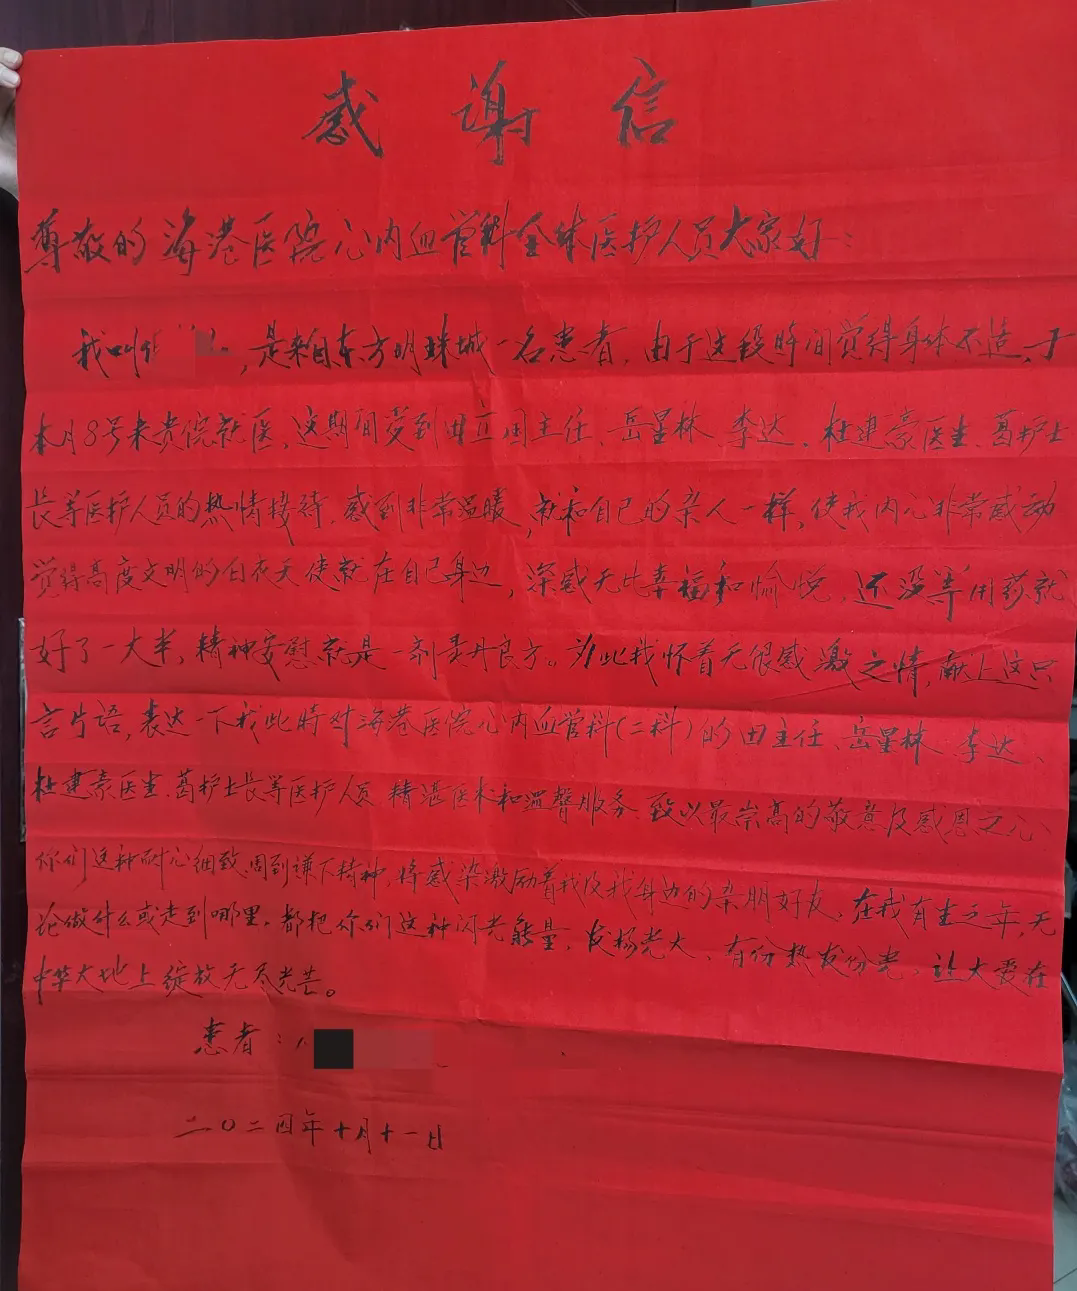 感谢信
尊敬的海港医院心内血管科全体医护人员大家好：
我叫 ，是来自东方明珠城一名患者，由于这段时间觉得身体不适，于
本月8号来贵院就医，这期间受到田立国主任、岳星林、李达、杜建豪医生、葛护士
长等医护人员的热情接待，感到非常温暖，就和自己的亲人一样，使我内心非常感动
觉得高度文明的白衣天使就在自己身边，深感无比幸福和愉悦，还没等用药就
好了一大半，精神安慰就是一剂灵丹良方。为此我怀着无限感激之情，献上这只
言片语，表达一下我此时对海港医院心内血管科(二科)的田主任、岳星林、李达、
杜建豪医生、葛护士长等医护人员精湛医术和温馨服务致以最崇高的敬意及感恩之心
你们这种耐心细致、周到谦下精神，将感染激励着我及我身边的亲朋好友，在我有生之年，无
论做什么或走到哪里，都把你们这种闪光能量，发扬光大、有份热发份光，让大爱在
中华大地上绽放无尽光芒。
患者：
二〇二四年十月十一日